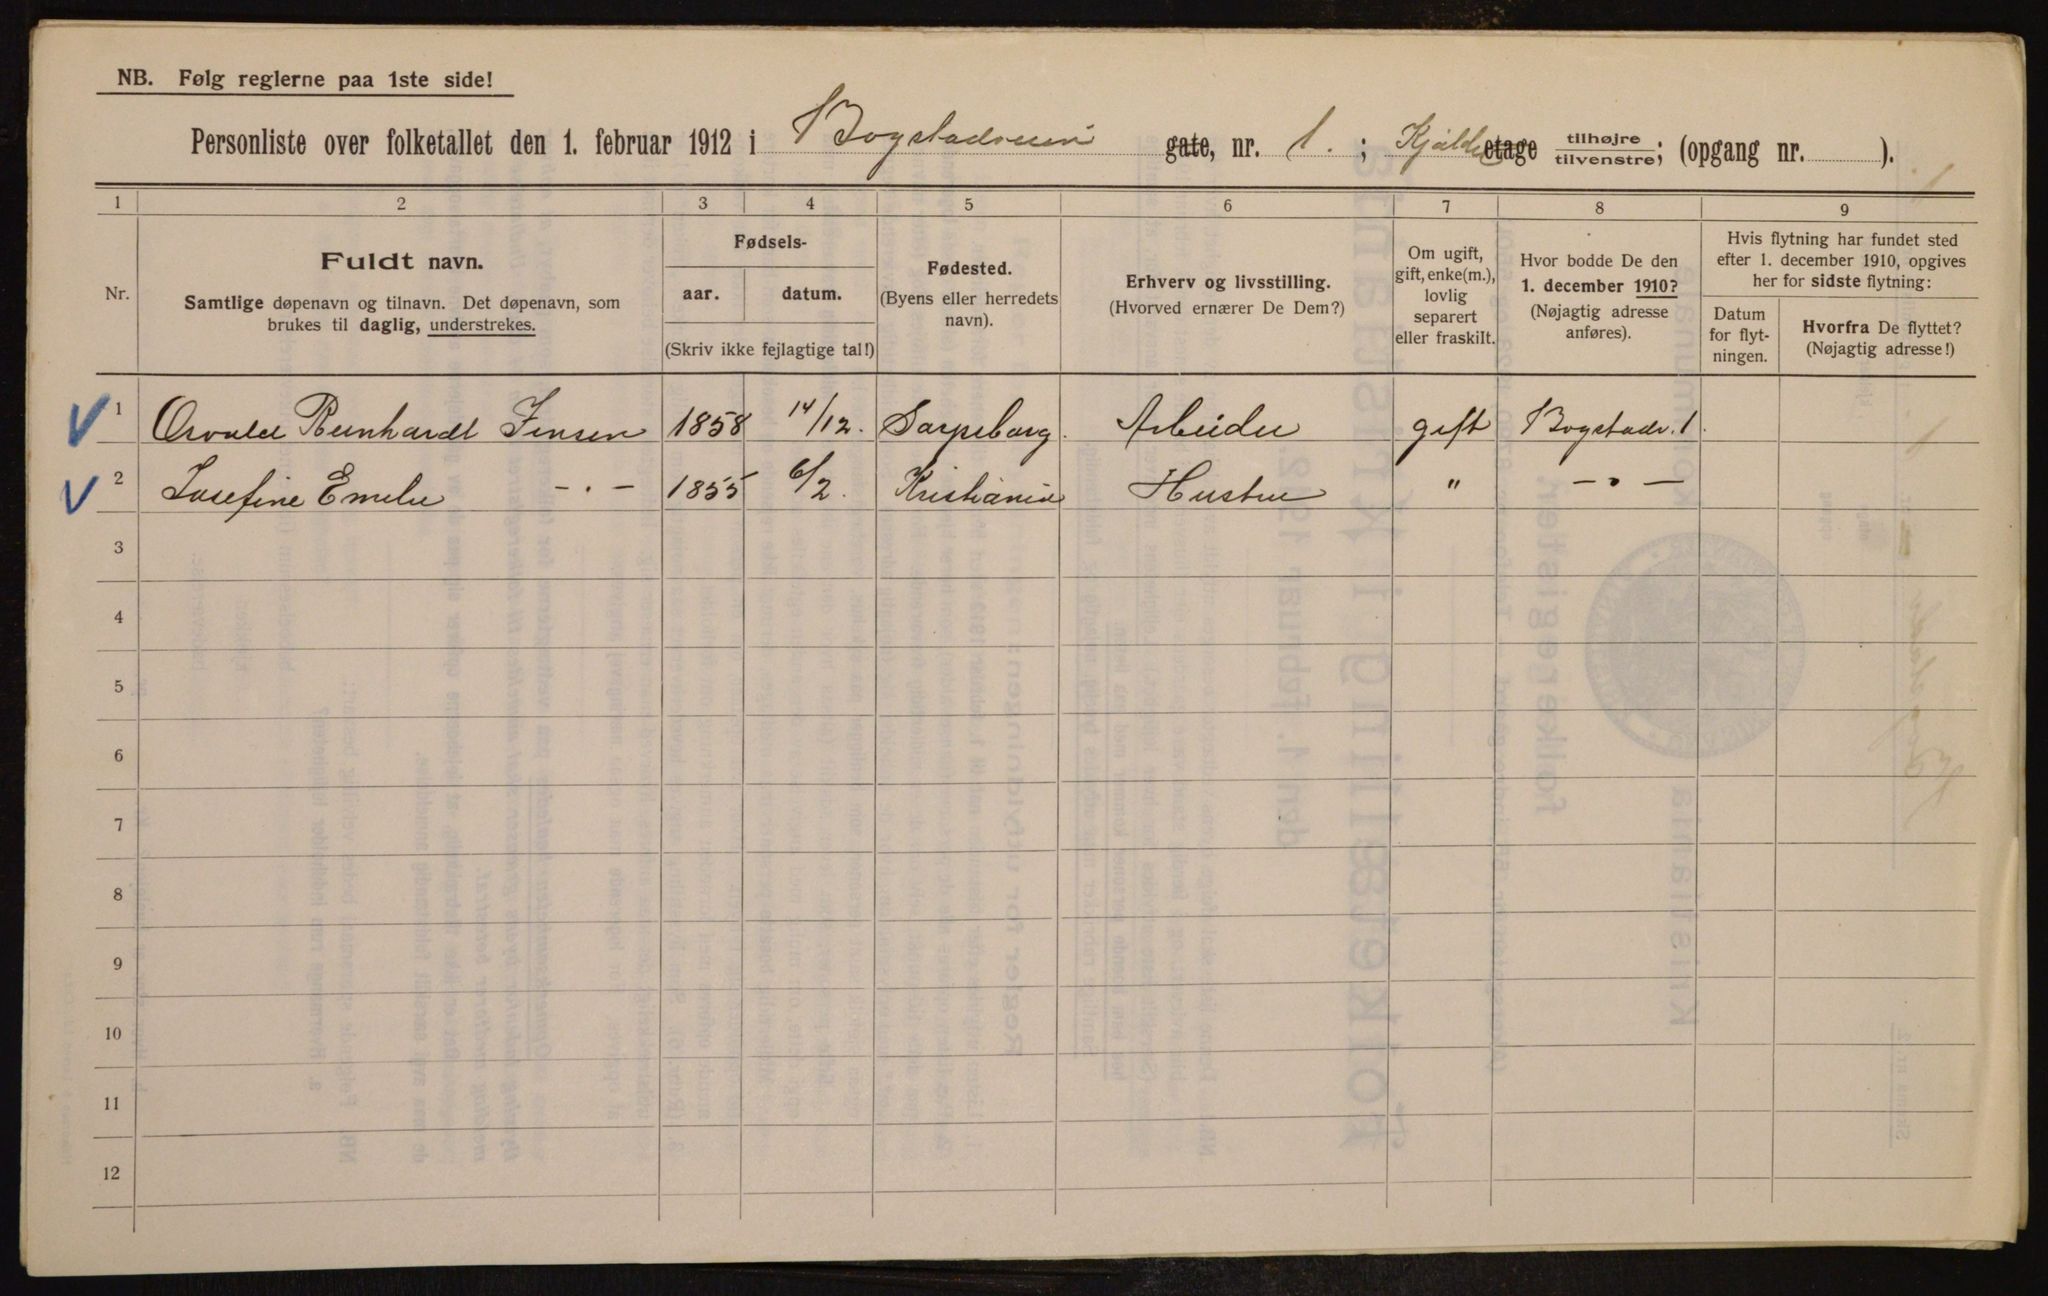 NB. Følg reglerne paa 1ste side!
Personliste over folketallet den 1. februar 1912 i Bogstadveien gate, nr. 1. ; Kjælder etage tilhøjre/tilvenstre; (opgang nr. ).
1 2 3 4 5 6 7 8 9
Nr.
Fuldt navn.
Samtlige døpenavn og tilnavn. Det døpenavn, som
brukes til daglig, understrekes.
Fødsels-
aar. datum.
(Skriv ikke fejlagtige tal!)
Fødested.
(Byens eller herredets
navn).
Erhverv og livsstilling.
(Hvorved ernærer De Dem?)
Om ugift,
gift, enke(m.),
lovlig
separert
eller fraskilt.
Hvor bodde De den
1. december 1910?
(Nøjagtig adresse
anføres).
Hvis flytning har fundet sted
efter 1. december 1910, opgives
her for sidste flytning:
Datum
for flyt-
ningen.
Hvorfra De flyttet?
(Nøjagtig adresse!)
1 Osvald Reinhardt Jensen 1858 14/12. Sarpsborg. Arbeider gift Bogstadv. 1.
2 Josefine Emilie -〃- 1855 6/2. Kristiania Hustru " -〃-
3
4
5
6
7
8
9
10
11
12